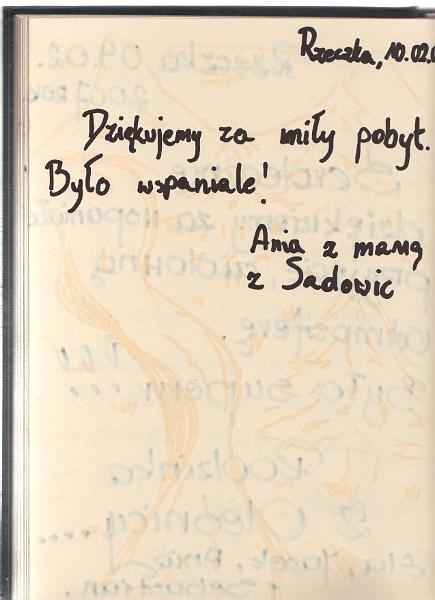 Rzeczka, 10.02.0
Dziękujemy za miły pobyt.
Było wspaniale!
Ania z mamą
z Sadowic